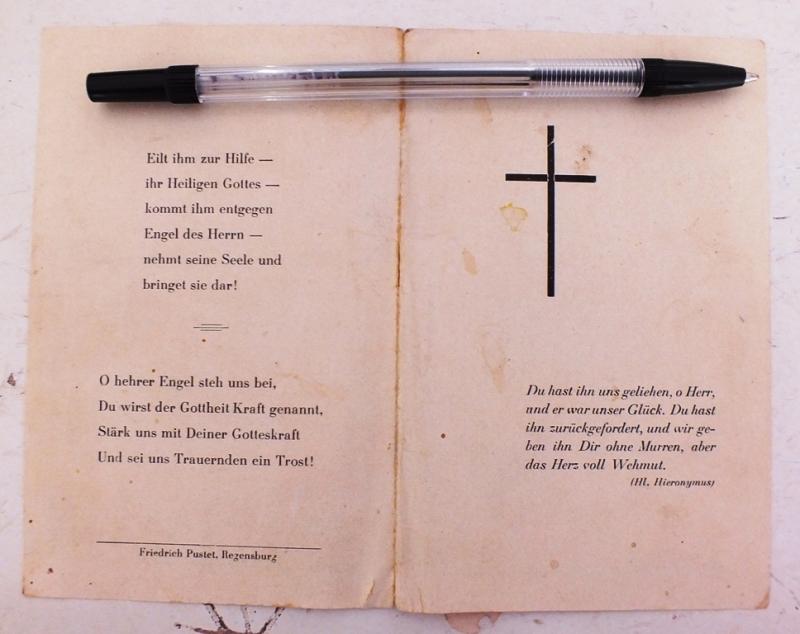 Eilt ihm zur Hilfe —
ihr Heiligen Gottes —
kommt ihm entgegen
Engel des Herrn —
nehmt seine Seele und
bringet sie dar!
O hehrer Engel steh uns bei,
Du wirst der Gottheit Kraft genannt,
Stärk uns mit Deiner Gotteskraft
Und sei uns Trauernden ein Trost!
Friedrich Pustet, Regensburg
Du hast ihn uns geliehen, o Herr,
und er war unser Glück. Du hast
ihn zurückgefordert, und wir ge-
ben ihn Dir ohne Murren, aber
das Herz voll Wehmut.
(Hl. Hieronymus)